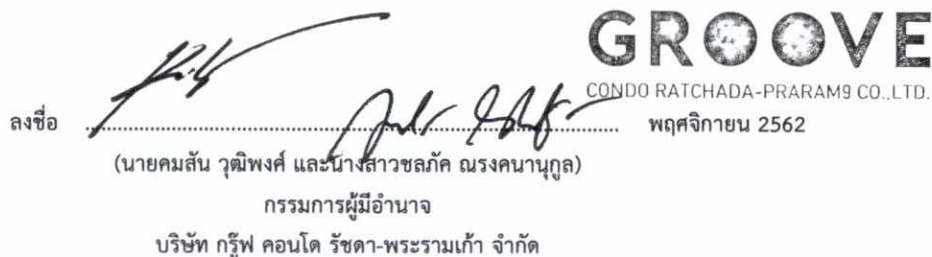 GROOVE
CONDO RATCHADA-PRARAM9 CO.,LTD.
ลงชื่อ ........................................ พฤศจิกายน 2562
(นายคมสัน วุฒิพงศ์ และนางสาวชลภัค ณรงคนานุกูล)
กรรมการผู้มีอำนาจ
บริษัท กรู๊ฟ คอนโด รัชดา-พระรามเก้า จำกัด